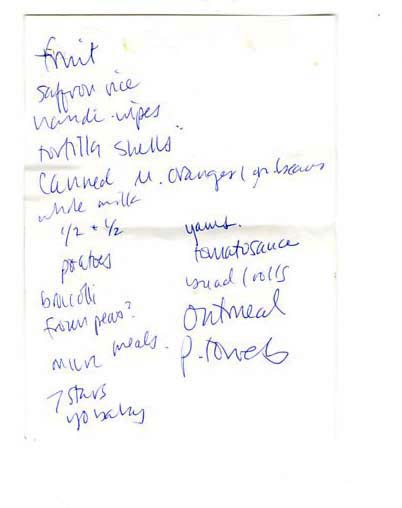 fruit
saffron rice
handi-wipes
tortilla shells
Canned m. oranges / gr. beans
whole milk
1/2 + 1/2
potatoes
broccolli
frozen peas?
micro meals.
7 stars
yobaby
yams.
tomatosauce
bread / rolls
Oatmeal
p. towels